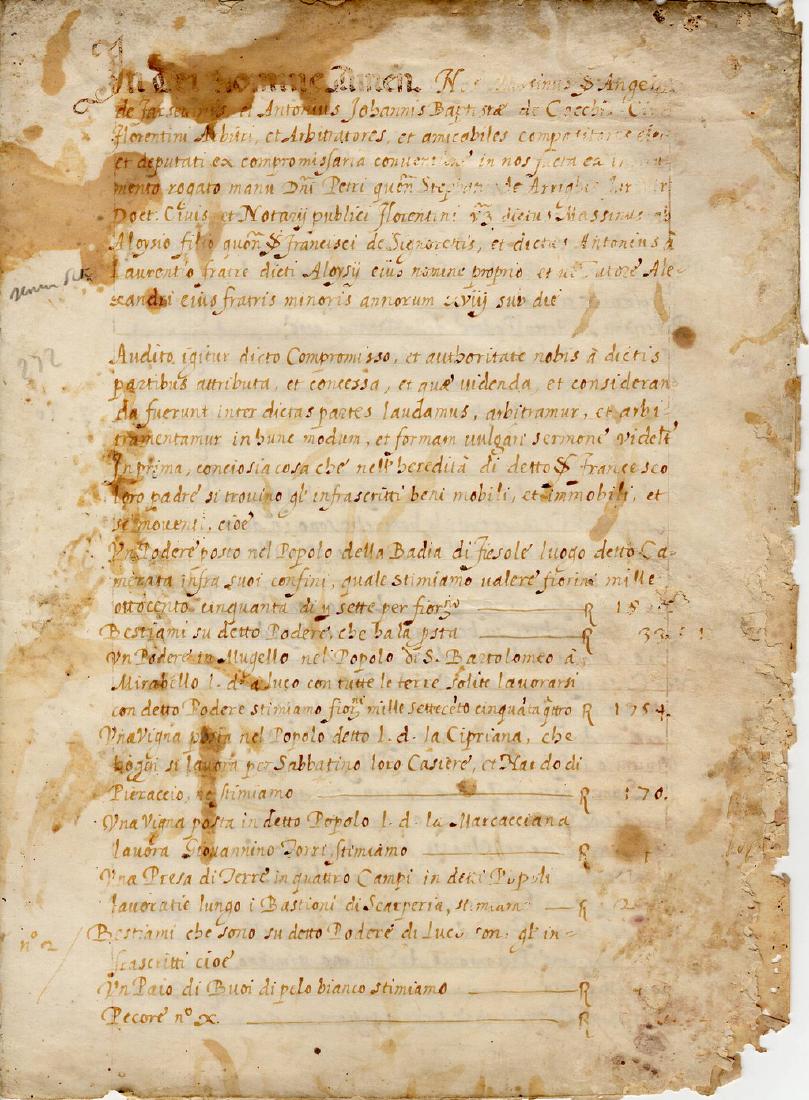 In Dei nomine Amen. Massinus Angel
de et Antonius Johannis Baptistæ de Cocchi
Florentini Arbitri, et Arbitratores, et amicabiles compositores
et deputati ex compromissaria in nos facta ex
mento rogato manu Dñi Petri quoñ de Arrighi
Doct. Civis, et Notarij publici Florentini dictus Massinus ab
Aloysio filio quoñ Francisci de Signorettis, et dictus Antonius à
Laurentio fratre dicti Aloysij eius nomine proprio et ut Tutore Ale-
xandri eius fratris minoris annorum xviij sub die
272
Audito igitur dicto Compromisso, et authoritate nobis à dictis
partibus attributa, et concessa, et quæ videnda, et consideran
da fuerunt inter dictas partes laudamus, arbitramur, et arbi-
tramentamur in hunc modum, et formam vulgari sermone videlt
In prima, conciosia cosa che nell' heredità di detto Francesco
loro padre si trovino gl' infrascritti beni mobili, et immobili, et
se moventi, cioè
Vn Podere posto nel Popolo della Badia di Fiesole luogo detto Ca-
merata infra suoi confini, quale stimiamo valere fiorini mille
ottocento cinquanta di sette per fior
Bestiami su detto Podere, che ha la psta R 33.
Vn Podere in Mugello nel Popolo di S. Bartolomeo à
Mirabello l. dº a luco con tutte le terre solite lavorarsi
con detto Podere stimiamo fior mille setteceto cinquãta qttro R 1754.
Vna Vigna posta nel Popolo detto l. d. la Cipriana, che
hoggi si lavora per Sabbatino loro Casiere, et Nardo di
Pieraccio, stimiamo R 170.
Vna Vigna posta in detto Popolo l. d. la Marcacciana
lavora Giovannino Torri stimiamo R
Vna Presa di Terre in quattro Campi in detti Popoli
lavoratie lungo i Bastioni di Scarperia, stimiamo R
nº 2
Bestiami che sono su detto Podere di Luco con gl' in-
frascritti cioè
Vn Paio di Buoi di pelo bianco stimiamo R
Pecore nº x. R